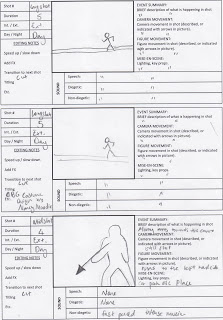 Shot # Longshot
Duration 5
Int. / Ext. Ext
Day / Night Day
EDITING NOTES
Speed up / slow down
Add FX
Transition to next shot
Cut
Titling
SOUND
Speech: "
Diegetic: "
Non-diegetic: "
EVENT SUMMARY:
BRIEF description of what is happening in shot
CAMERA MOVEMENT:
Camera movement in shot (described, or
indicated with arrows in picture).
FIGURE MOVEMENT:
Figure movement in shot (described, or
indicated with arrows in picture).
MISE-EN-SCENE:
Lighting, Key props
Shot # Longshot
Duration 5
Int. / Ext. Ext.
Day / Night Day
EDITING NOTES
Speed up / slow down
Add FX
Transition to next shot
Cut
Titling
SOUND
Speech: "
Diegetic: "
Non-diegetic: "
EVENT SUMMARY:
BRIEF description of what is happening in shot
CAMERA MOVEMENT:
Camera movement in shot (described, or
indicated with arrows in picture).
FIGURE MOVEMENT:
Figure movement in shot (described, or
indicated with arrows in picture).
MISE-EN-SCENE:
Lighting, Key props
Shot #
Duration 4
Int. / Ext. Ext.
Day / Night Day
EDITING NOTES
Speed up / slow down
Add FX
Transition to next shot
Cut
Titling
SOUND
Speech: None
Diegetic: None
Non-diegetic: fast paced music
EVENT SUMMARY:
BRIEF description of what is happening in shot
CAMERA MOVEMENT:
Camera movement in shot (described, or
indicated with arrows in picture).
FIGURE MOVEMENT:
Figure movement in shot (described, or
indicated with arrows in picture).
to the left
MISE-EN-SCENE:
Lighting, key props
Place